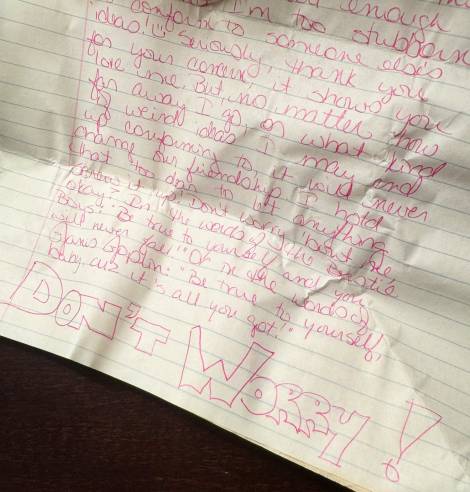 enough
conform to I'm too stubborn
ideas! Seriously, thank you
for your concern, it shows you
love me. But no matter how
far away I go, or what kind
of weird ideas I may end
up conforming to, it would never
change our friendship. I hold
that too dear to let anything
Don't worry about me
okay? In the words of the Beastie
Boys: "Be true to yourself and you
will never fall" Or in the words of
Janis Joplin: "Be true to yourself,
baby, cuz it's all you got!"
DON'T WORRY!